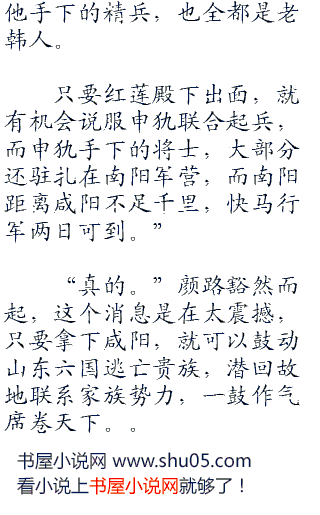 他手下的精兵，也全都是老
韩人。
只要红莲殿下出面，就
有机会说服申犰联合起兵，
而申犰手下的将士，大部分
还驻扎在南阳军营，而南阳
距离咸阳不足千里，快马行
军两日可到。”
“真的。”颜路豁然而
起，这个消息是在太震撼，
只要拿下咸阳，就可以鼓动
山东六国逃亡贵族，潜回故
地联系家族势力，一鼓作气
席卷天下。。
书屋小说网 www.shu05.com
看小说上书屋小说网就够了！